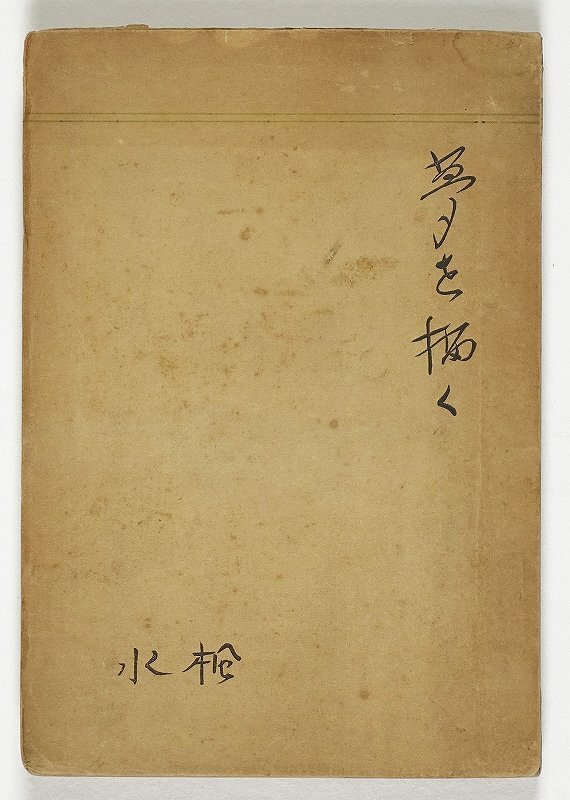 夢を描く
楓水